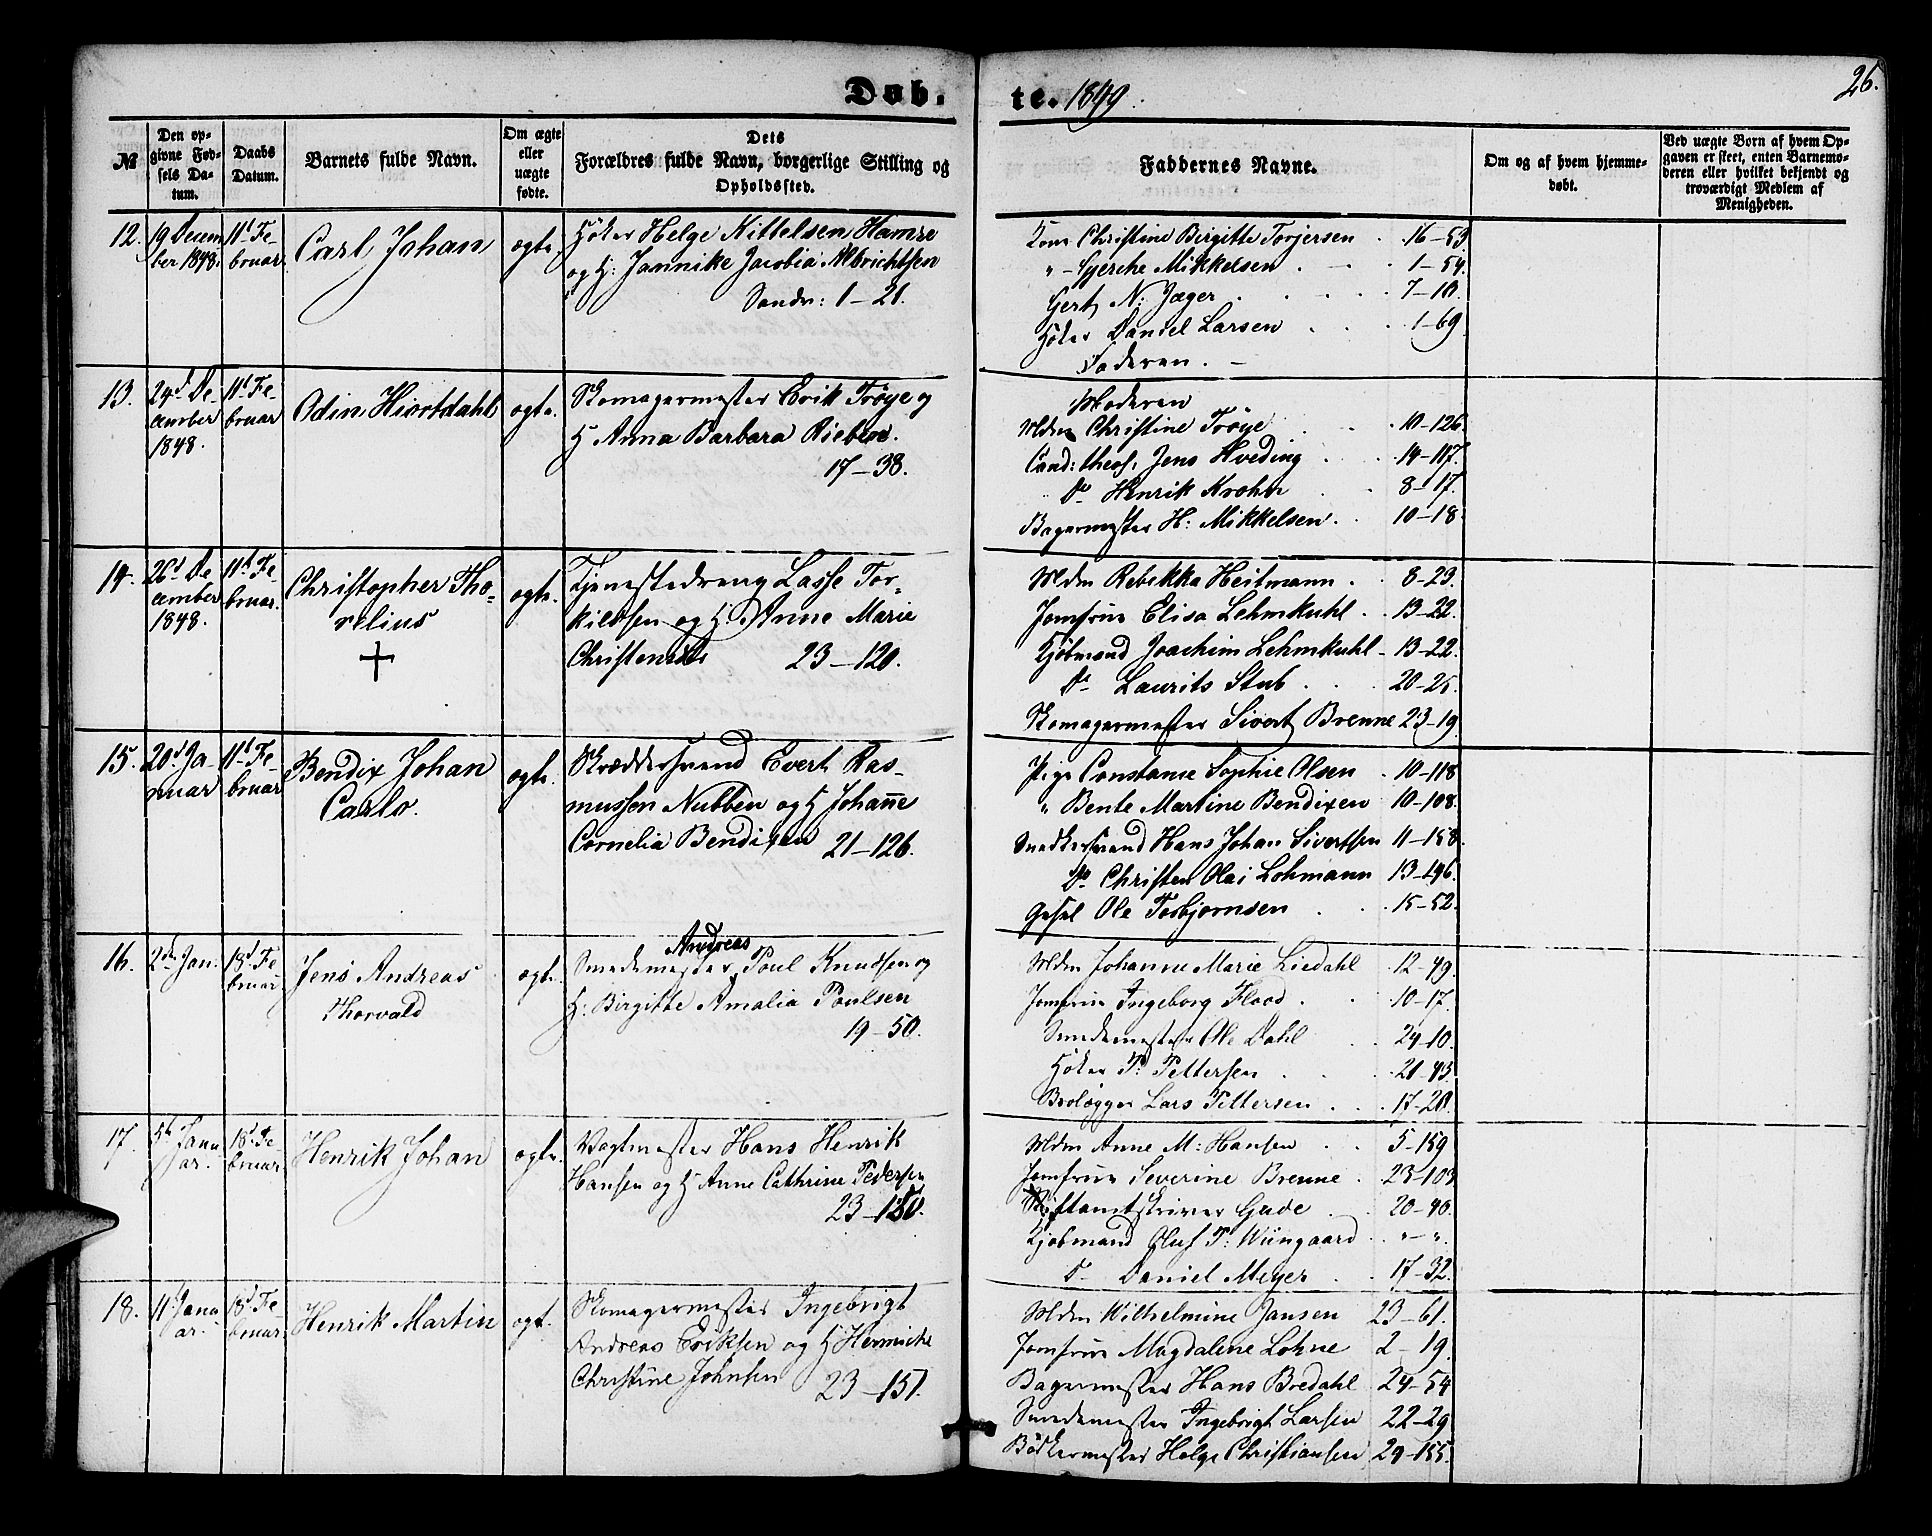 Døb. te. 1849.
26.
№
Den opgivne Fødsels Datum.
Daabs Datum.
Barnets fulde Navn.
Om ægte eller uægte fødte.
Dets Forældres fulde Navn, borgerlige Stilling og Opholdssted.
Faddernes Navne.
Om og af hvem hjemmedøbt.
Ved uægte Børn af hvem Opgaven er skeet, enten Barnemoderen eller hvilket bekjendt og troværdigt Medlem af Menigheden.
12.
19 Decem
ber 1848.
11t Fe-
bruar.
Carl Johan
ægte.
Höker Helge Kittelsen Hamre
og H: Jannike Jacobia Albrichtsen
Sandv: 1-21.
Kone Christine Birgitte Torjersen . 16-53
" Gjerche Mikkelsen . - . 1-54.
Gert N: Jæger . . . . 7-10.
Höker Daniel Larsen . . 1-69
Faderen. -
13.
24d De-
cember
1848.
11t Fe-
bruar
Odin Hiortdahl
ægte.
Skomagermester Erik Trøye og
H Anna Barbara Rieber.
17-38.
Moderen
Mdm Christine Trøye . . 10-126
Cand: theol, Jens Hveding . 14-117.
Do Henrik Krohn . 8-17.
Bagermester H: Mikkelsen. . 10-18.
14.
26d De
cember
1848.
11t Fe-
bruar.
Christopher Tho-
relius
ægte.
Tjenestedreng Lasse Tor-
kildsen og H. Anne Marie
Christensdr 23-120.
Mdm Rebekka Heitmann . . 8-23.
Jomfrue Elisa Lehmkuhl . 13-22.
Kjöbmand Joachim Lehmkuhl - 13-22.
Do Laurits Stub . . . 20-25.
Skomagermester Sivert Brenne 23-19.
15.
20d Ja-
nuar
11t Fe-
bruar
Bendix Johan
Carlo.
ægte.
Skræddersvend Evert Ras-
mussen Nubben og H Johanne
Cornelia Bendixen 21-126.
Pige Constance Sophie Olsen . 10-118
" Bente Martine Bendixen 10-108.
Snedkersvend Hans Johan Sivertsen 11-158.
Do Christen Olai Lohmann 13-196.
Gesel Ole Torbjornsen . . 15-52.
16.
2den Jan.
18d Fe
bruar.
Jens Andreas
Thorvald
ægte.
Andreas
Smedemester Poul Knudsen og
H: Birgitte Amalia Poulsen
19-50.
Mdm Johanne Marie Liedahl . 12-49.
Jomfrue Ingeborg Flood . . 10-17.
Smedemester Ole Dahl . . 24-10.
Höker P: Pettersen . . . 21-43.
Brolægger Lars Pettersen . . 17-20.
17.
5t Janu
ar.
18d Fe-
bruar.
Henrik Johan
ægte.
Vagtmester Hans Henrik
Hansen og H Anne Cathrine Pedersen
23-150.
Mdm Anne M: Hansen . . 5-159
Jomfrue Severine Brenne . 23-103
Stiftamtskriver Gade . . 20-40.
Kjöbmand Oluf P: Wiingaard . "-".
Do Daniel Meyer . . 17-32.
18.
11 Janu
ar.
18d Fe-
bruar
Henrik Martin
ægt.
Skomagermester Ingebrigt
Andreas Eriksen og H Hermiche
Christine Johnsen 23-151.
Mdm Wilhelmine Jansen 23-61.
Jomfrue Magdalene Lohne 2-19.
Bagermester Hans Bredahl 24-54
Smedemester Ingebrigt Larsen 22-29
Bödkermester Helge Christiansen 29-155.